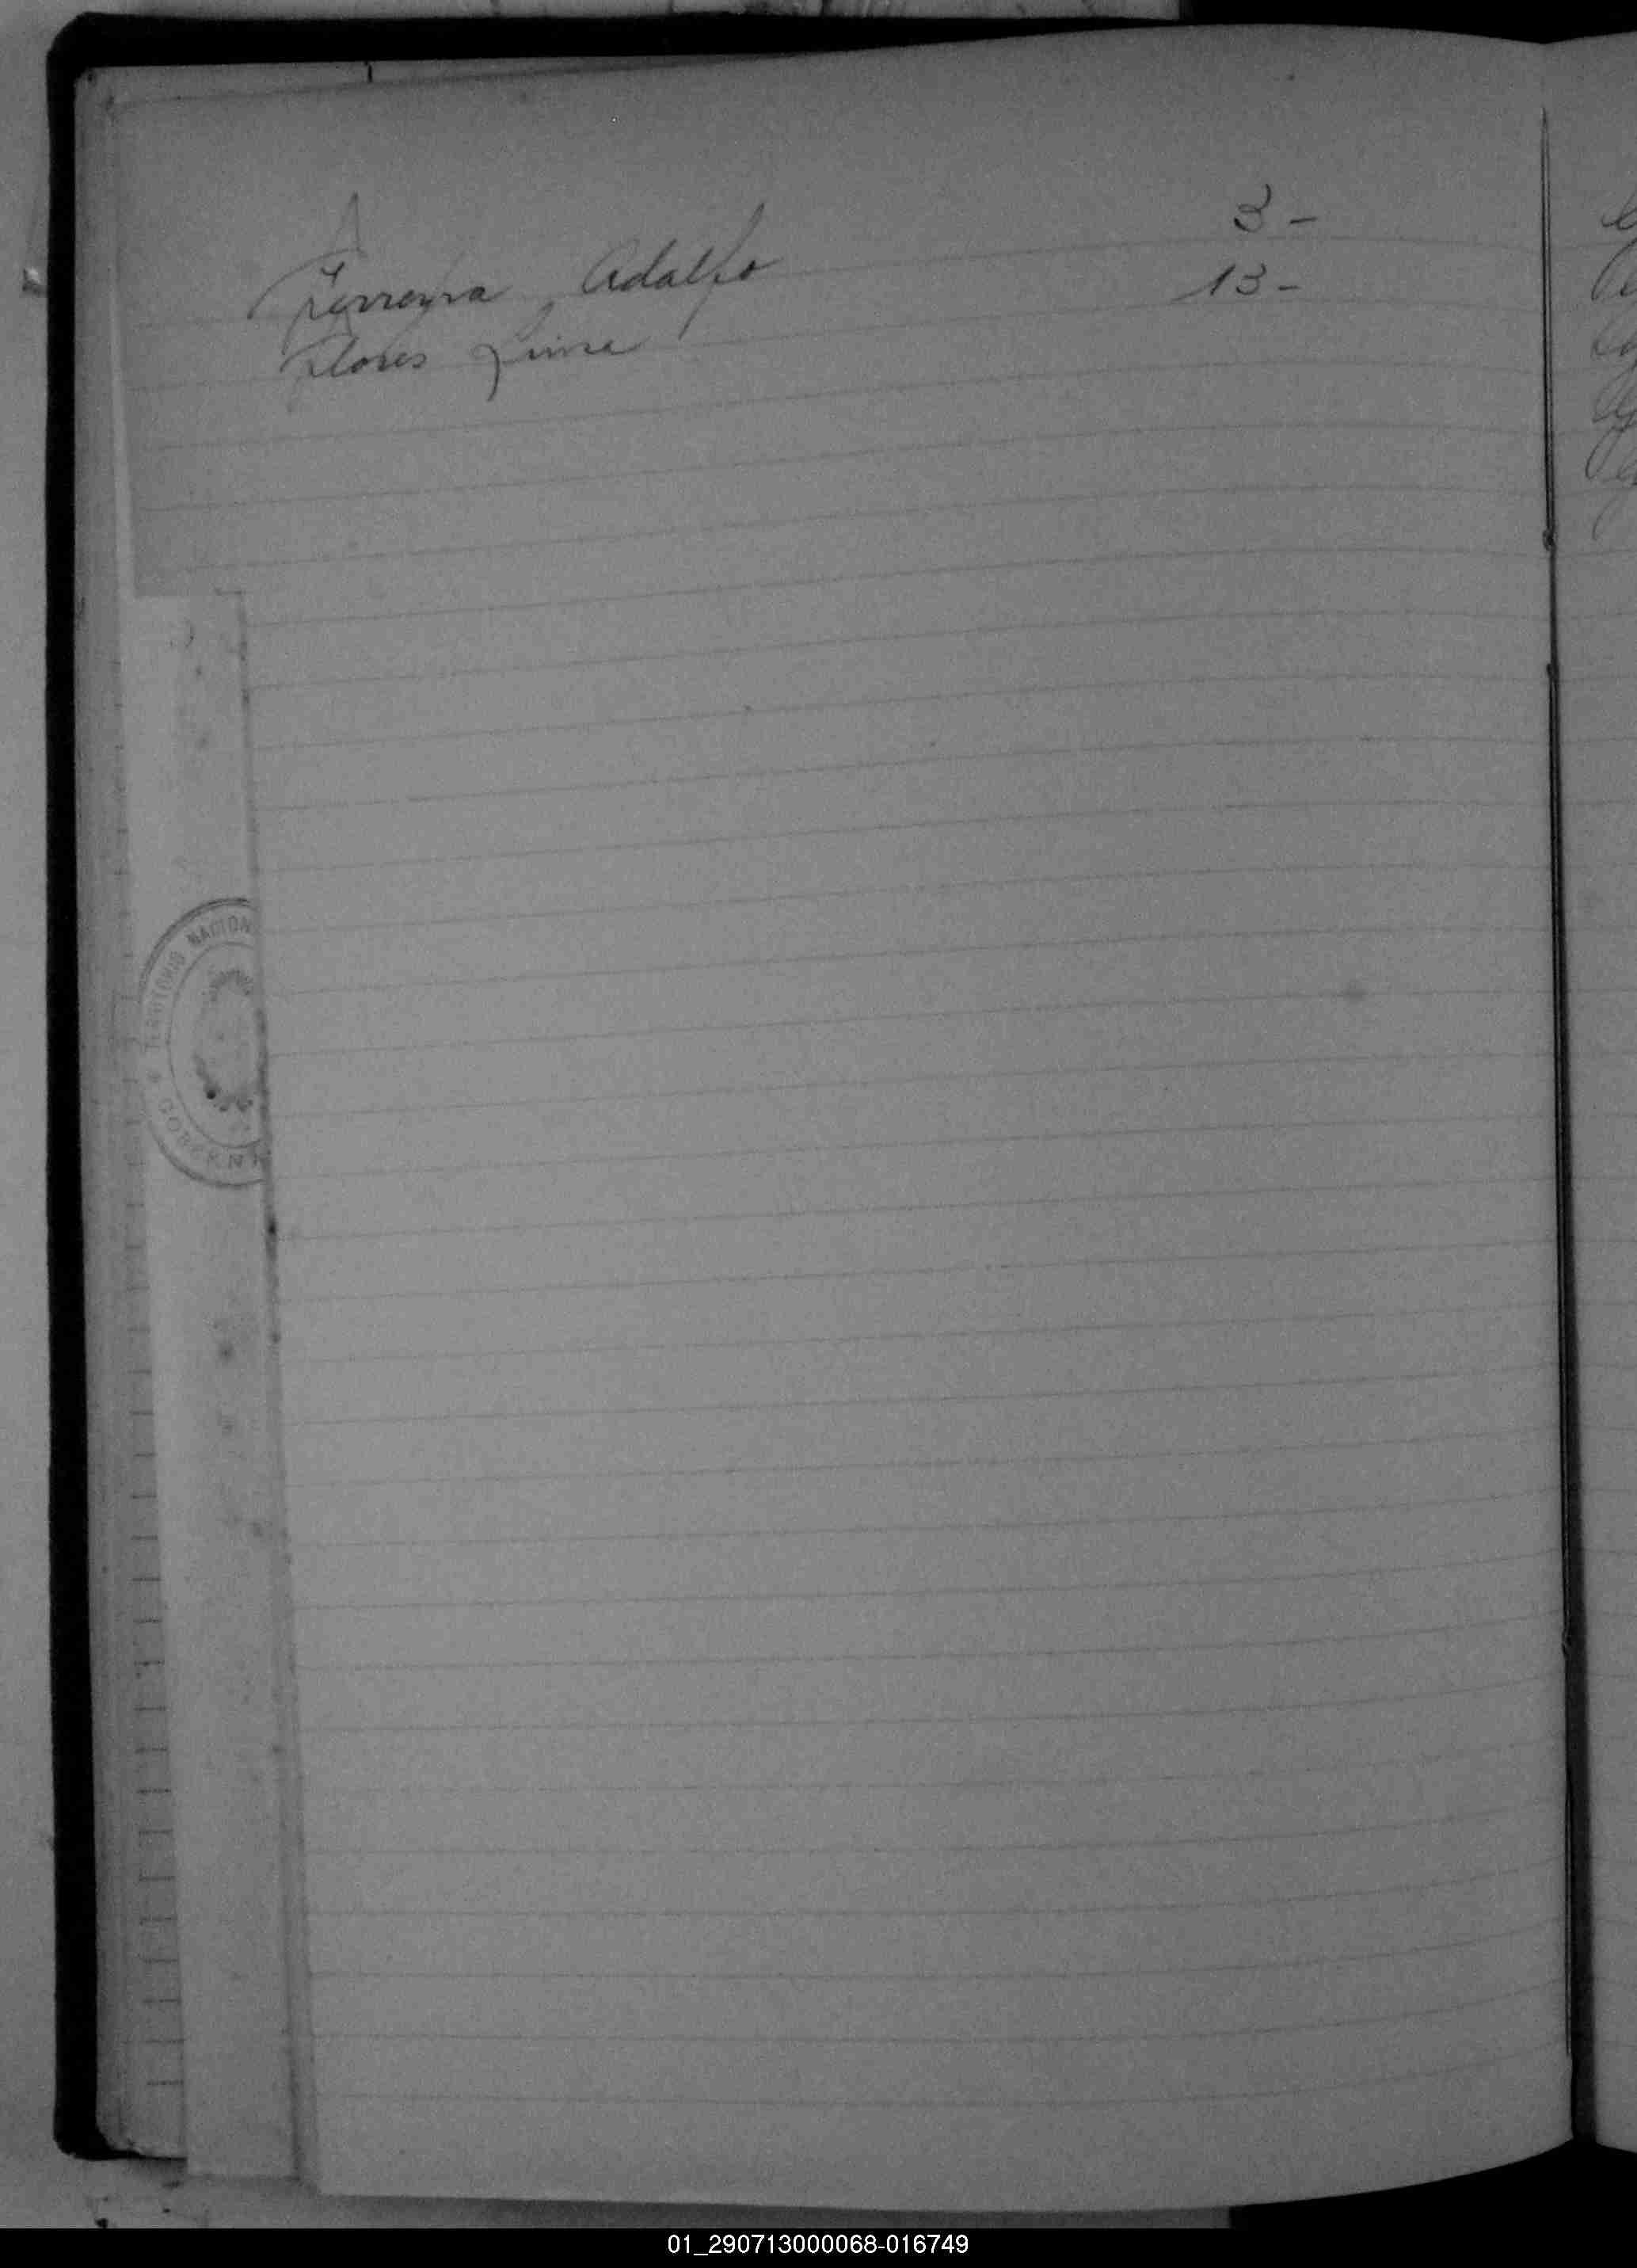 Ferreyra Adolfo 3-
Flores 13-
TERRITORIO NACION
GOBERN
01_290713000068-016749